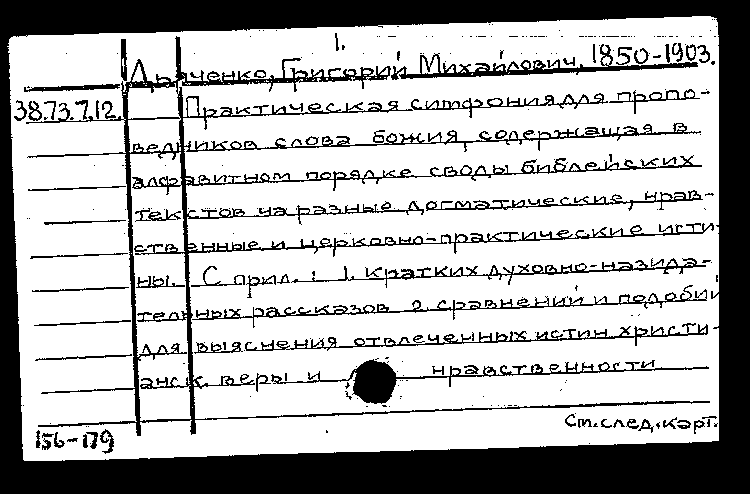 1.
Дьяченко, Григорий Михайлович, 1850-1903.
38.73.7.12. Практическая симфония для пропо-
ведников слова божия, содержащая в
алфавитном порядке своды библейских
текстов на разные догматические, нрав-
ственные и церковно-практические исти-
ны. С прил.: 1. кратких духовно-назида-
тельных рассказов 2. сравнений и подобий
для выяснения отвлеченных истин христи-
анск. веры и нравственности
См. след. карт.
156-179